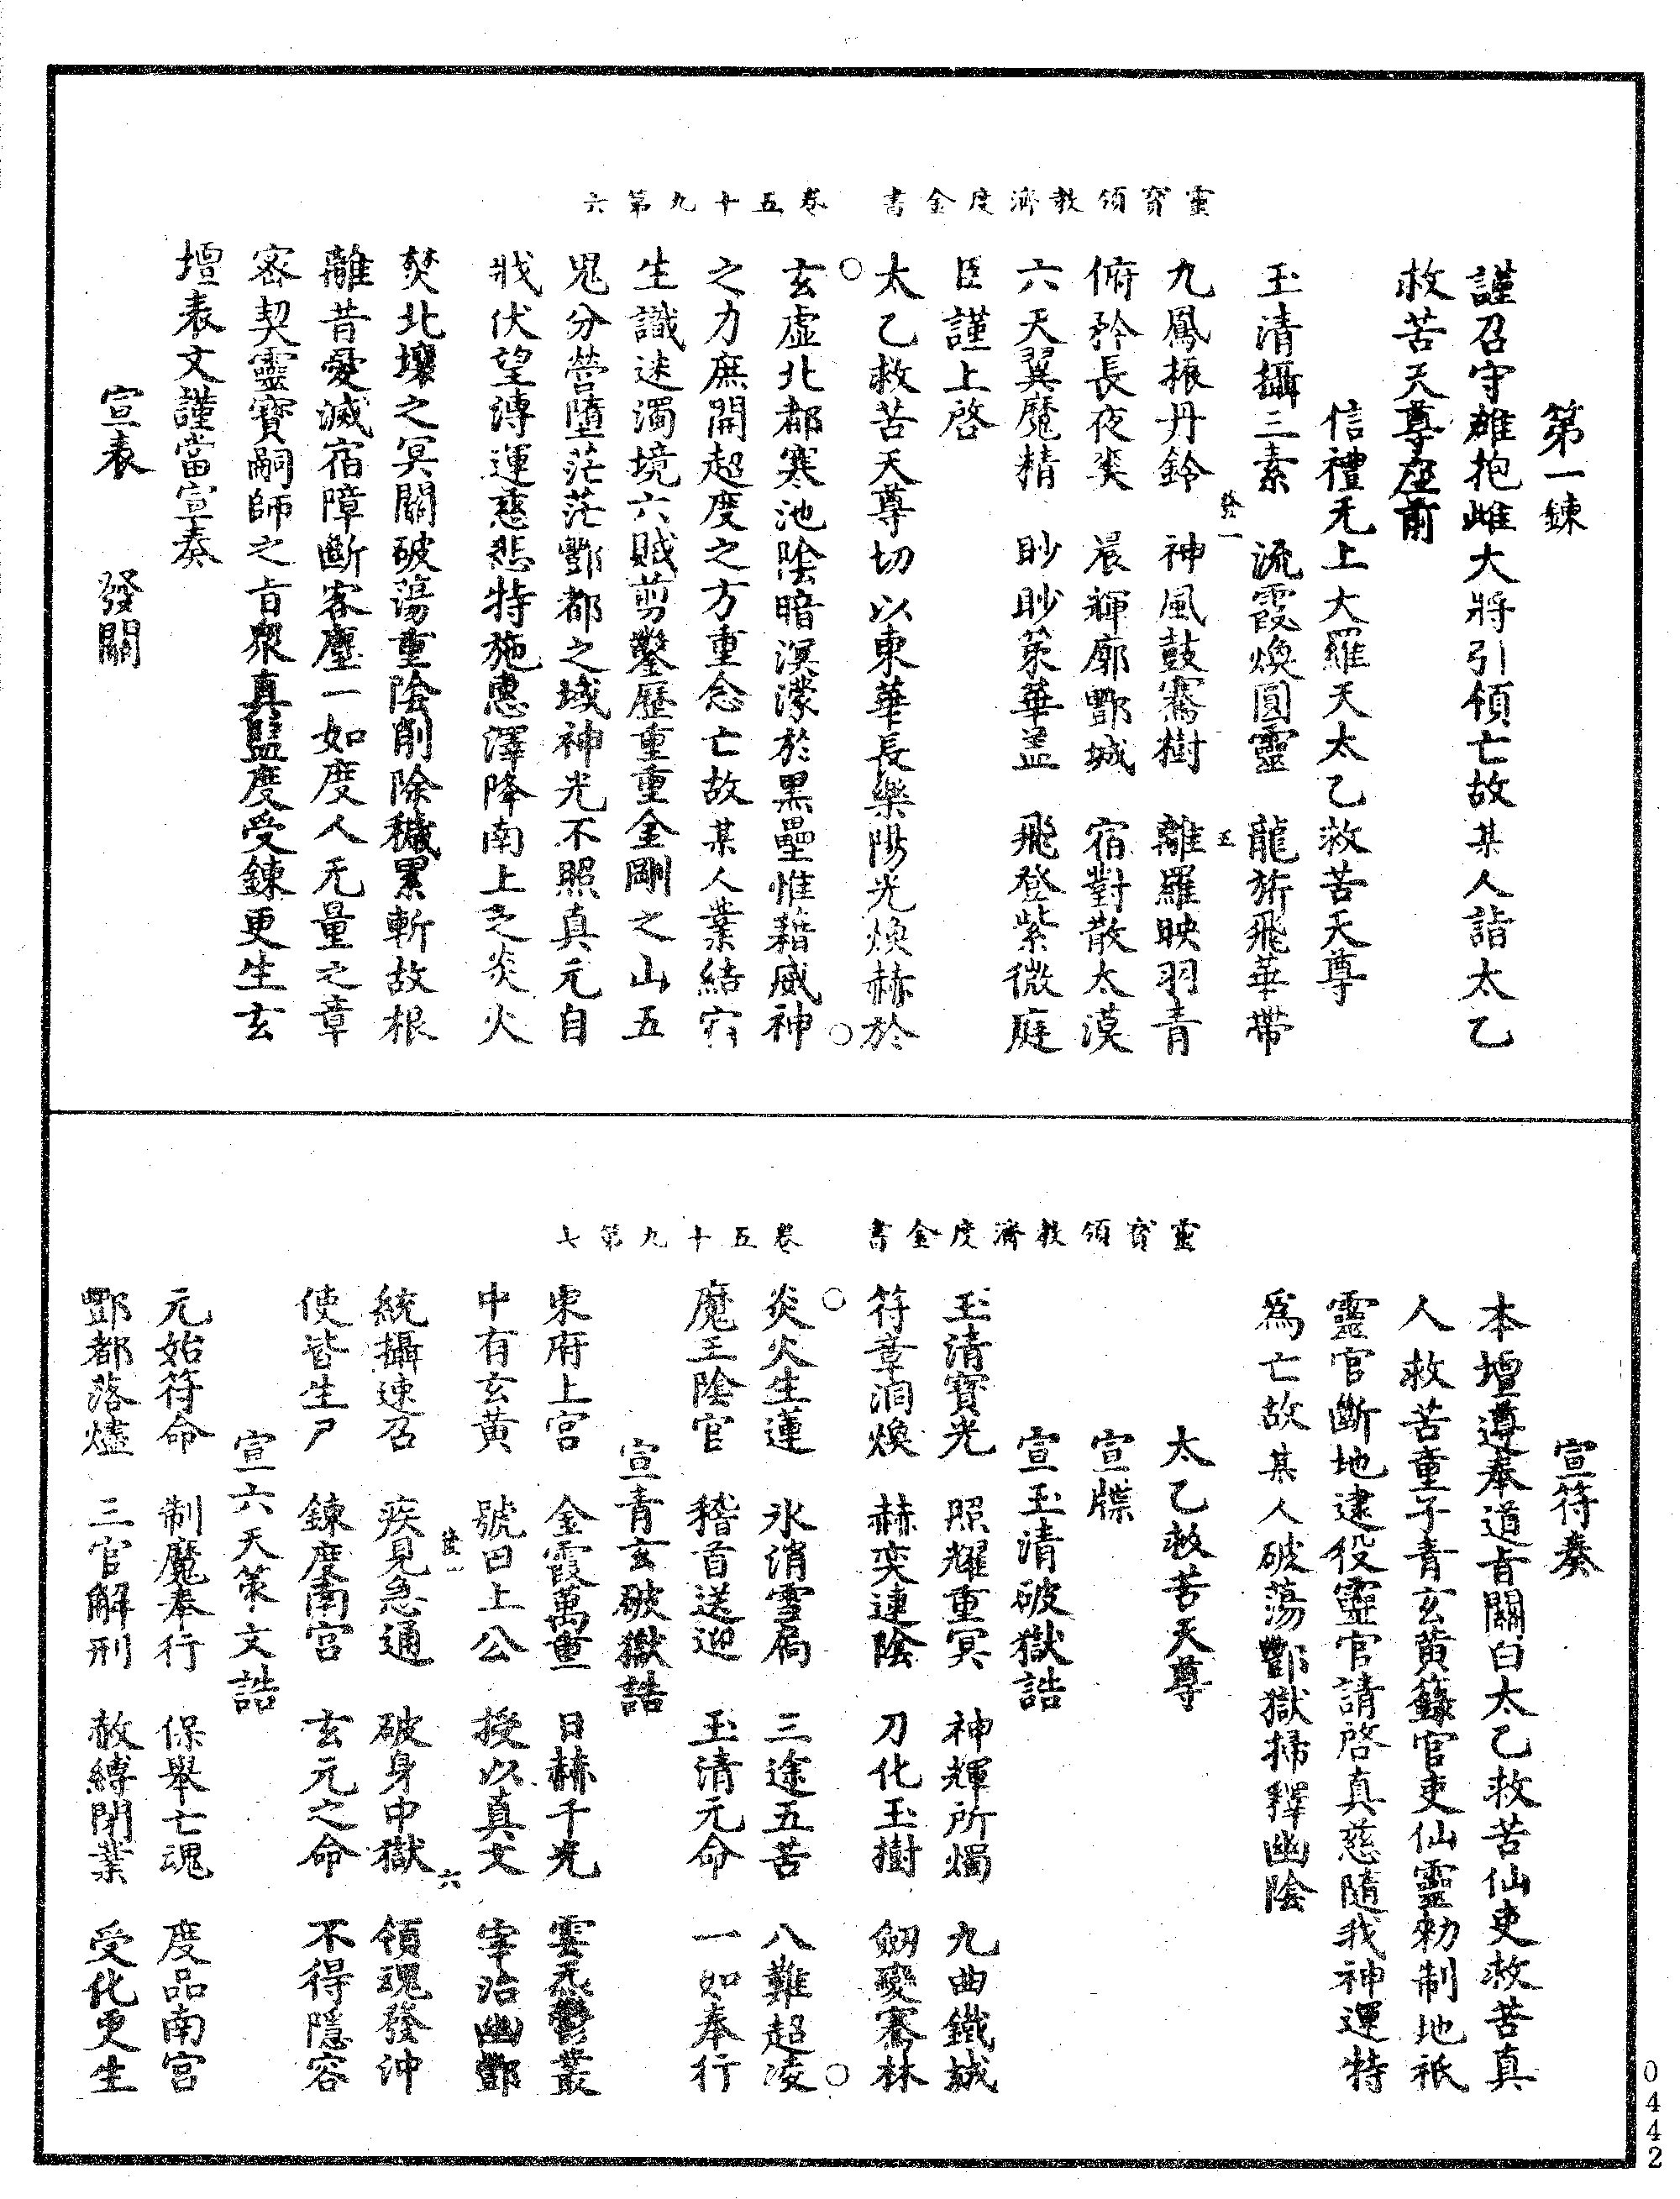 靈寶領教濟度金書　卷五十九第六
第一鍊
謹召守雄抱雌大將引領亡故某人詣太乙
救苦天尊座前
信禮无上大羅天太乙救苦天尊
玉清攝三素　流霞煥圓靈　龍旂飛華帶
九鳳振丹鈴　神風鼓騫樹　離羅映羽青
俯矜長夜爽　晨輝廓酆城　宿對散太漠
六天翼魔精　眇眇策華蓋　飛登紫微庭
臣謹上啓
太乙救苦天尊切以東華長樂陽光煥赫於
玄虛北都寒池陰暗溟濛於黑壘惟藉威神
之力庶開超度之方重念亡故某人業結
生識迷濁境六賊剪鑿歷重重金剛之山五
鬼分營墮茫茫酆都之域神光不照真元自
戕伏望溥運慈悲特施惠澤降南上之炎火
焚北壤之冥關破蕩重陰削除穢累斬故根
離昔愛滅宿障斷客塵一如度人无量之章
密契靈寶嗣師之旨眾真監度受鍊更生玄
壇表文謹當宣奏
宣表　發關
靈寶領教濟度金書　卷五十九第七
宣符奏
本壇遵奉道旨關白太乙救苦仙吏救苦真
人救苦童子青玄黃籙官吏仙靈勑制地祇
靈官斷地逮役靈官請啓真慈隨我神運特
為亡故某人破蕩酆獄掃釋幽陰
太乙救苦天尊
宣牒
宣玉清破獄誥
玉清寶光　照耀重冥　神輝所燭　九曲鐵城
符章洞煥　赫奕連陰　刀化玉樹　劒變騫林
炎火生蓮　氷消雪局　三途五苦　八難超凌
魔王陰官　稽首送迎　玉清元命　一如奉行
宣青玄破獄誥
東府上宮　金霞萬重　日赫千光　雲炁鬱叢
中有玄黃　號曰上公　授以真文　宰治幽酆
統攝速召　疾見急通　破身中獄　領魂發沖
使皆生尸　鍊度南宮　玄元之命　不得隱容
宣六天策文誥
元始符命　制魔奉行　保舉亡魂　度品南宮
酆都落燼　三官解刑　赦縛閉業　受化更生
0442